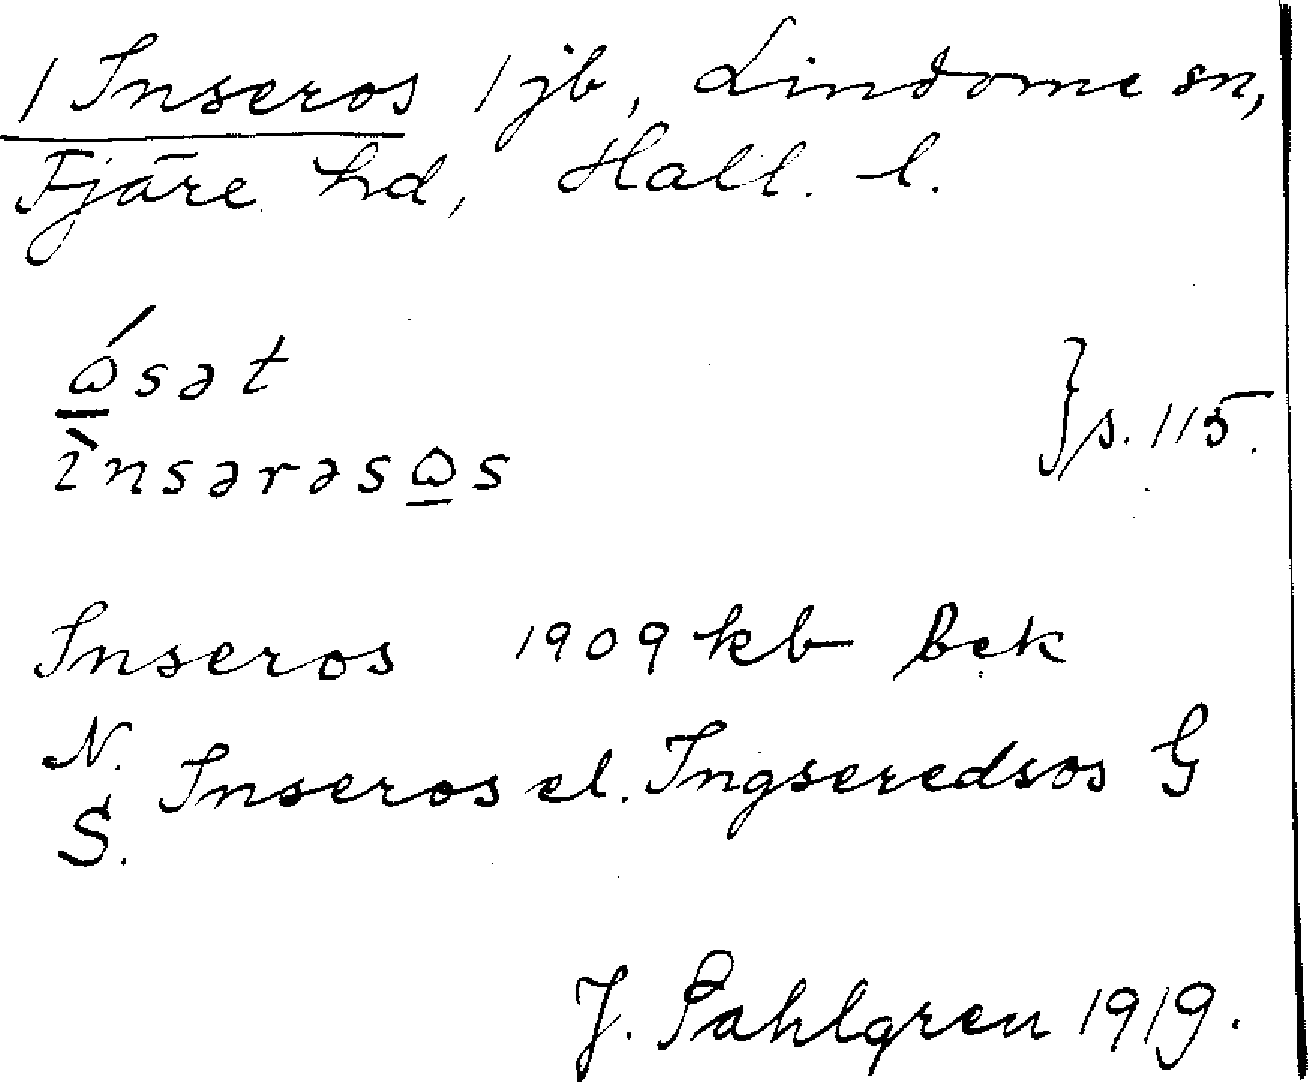 1 Inseros 1 jb, Lindome sn,
Fjäre hd, Hall. l.
ώ̲sət
ìnsərəsω̲s } s. 115.
Inseros 1909 kb Bek
N.
S. Inseros el. Ingseredsos G
J. Pahlgren 1919.